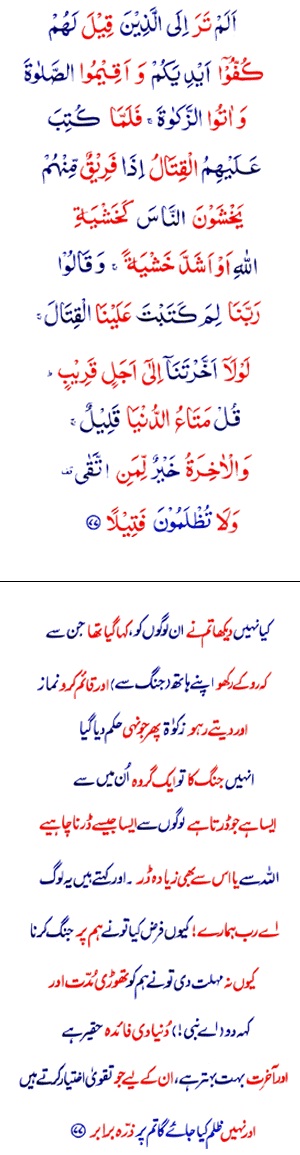 اَلَمْ تَرَ اِلَى الَّذِيْنَ قِيْلَ لَهُمْ
كُفُّوْۤا اَيْدِيَكُمْ وَ اَقِيْمُوا الصَّلٰوةَ
وَ اٰتُوا الزَّكٰوةَ ۚ فَلَمَّا كُتِبَ
عَلَيْهِمُ الْقِتَالُ اِذَا فَرِيْقٌ مِّنْهُمْ
يَخْشَوْنَ النَّاسَ كَخَشْيَةِ
اللهِ اَوْ اَشَدَّ خَشْيَةً ۚ وَ قَالُوْا
رَبَّنَا لِمَ كَتَبْتَ عَلَيْنَا الْقِتَالَ ۚ
لَوْلَاۤ اَخَّرْتَنَاۤ اِلٰۤى اَجَلٍ قَرِيْبٍ ؕ
قُلْ مَتَاعُ الدُّنْيَا قَلِيْلٌ ۚ
وَ الْاٰخِرَةُ خَيْرٌ لِّمَنِ اتَّقٰى قف
وَلَا تُظْلَمُوْنَ فَتِيْلًا ﴿۷۷﴾
کیا نہیں دیکھا تم نے ان لوگوں کو، کہا گیا تھا جن سے
کہ روکے رکھو اپنے ہاتھ (جنگ سے) اور قائم کرو نماز
اور دیتے رہو زکوٰۃ پھر جونہی حکم دیا گیا
انہیں جنگ کا تو ایک گروہ اُن میں سے
ایسا ہے جو ڈرتا ہے لوگوں سے ایسا جیسے ڈرنا چاہیے
اللہ سے یا اس سے بھی زیادہ ڈر ۔ اور کہتے ہیں یہ لوگ
اے رب ہمارے! کیوں فرض کیا تو نے ہم پر جنگ کرنا
کیوں نہ مہلت دی تو نے ہم کو تھوڑی مُدّت اور
کہہ دو (اے نبی!) دُنیاوی فائدہ حقیر ہے
اور آخرت بہت بہتر ہے، ان کے لیے جو تقویٰ اختیار کرتے ہیں
اور نہیں ظلم کیا جائے گا تم پر ذرّہ برابر ﴿۷۷﴾